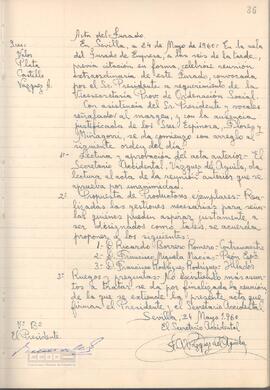 36
Acta del Jurado
Sres:
Plata
Castillo
Vázquez A.
En Sevilla, a 24 de Mayo de 1960: En la sala
del Jurado de Empresa, a las seis de la tarde,
previa citación en forma, celebra reunión
extraordinaria de este Jurado, convocada
por el Sr. Presidente a requerimiento de la
Vicesecretaría Prov. de Ordenación Social.
Con asistencia del Sr. Presidente y vocales
reseñados al margen, y con la ausencia
justificada de los Sres. Espinosa, Flores y
se da comienzo con arreglo al
siguiente orden del día:
1º- Lectura y aprobación del acta anterior - El
Secretario Accidental, Vázquez de Aguila, da
lectura al acta de la reunión anterior que es
aprueba por unanimidad.
2º- Propuesta de Productores ejemplares: Rea-
lizadas las gestiones necesarias para seña-
lar quienes pueden aspirar justamente, a
ser designados como tales, se acuerda
proponer a los siguientes:
1: D. Ricardo Borrero Romero -
2: D. Francisco
3: D. Francisco Rodríguez Rodríguez -
3º- Ruegos y preguntas: No existiendo más asun-
tos a tratar se da por finalizada la reunión
de la que se extiende la presente acta que
firman el Presidente, y el Secretario Accidental
Sevilla, 24 Mayo 1960
Vº Bº
El Presidente
El Secretario Accidental